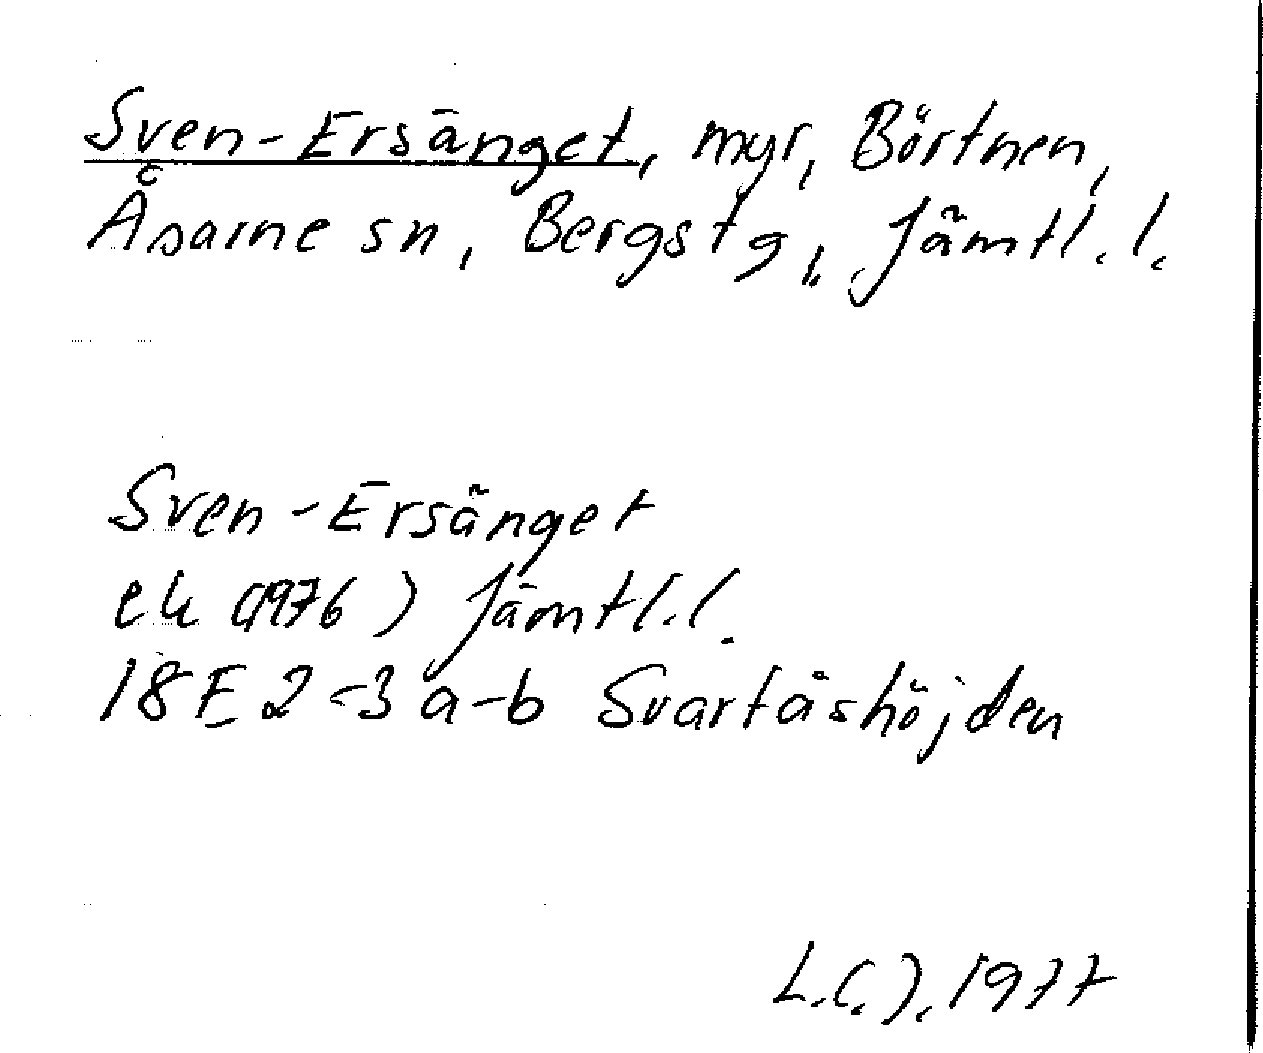 Sven-Ersänget, myr, Börtnen,
Åsarne sn, Bergs tg, Jämtl. l.
Sven-Ersänget
ek (1976) Jämtl. l.
18E 2-3 a-b Svartåshöjden
L.C.J. 1977